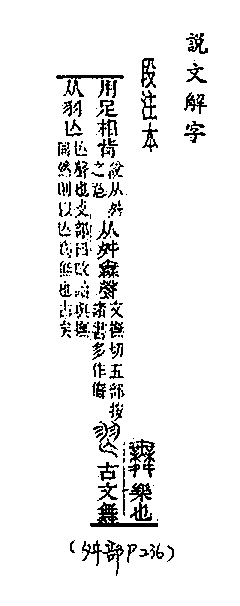 說文解字
段注本
舞 樂也
用足相背 說从舛之意 从舛無聲 文撫切五部按諸書多作儛 古文舞
从羽亾 亾聲也攴部曰讀與撫同然則以亾爲無也古矣
(舛部P236)